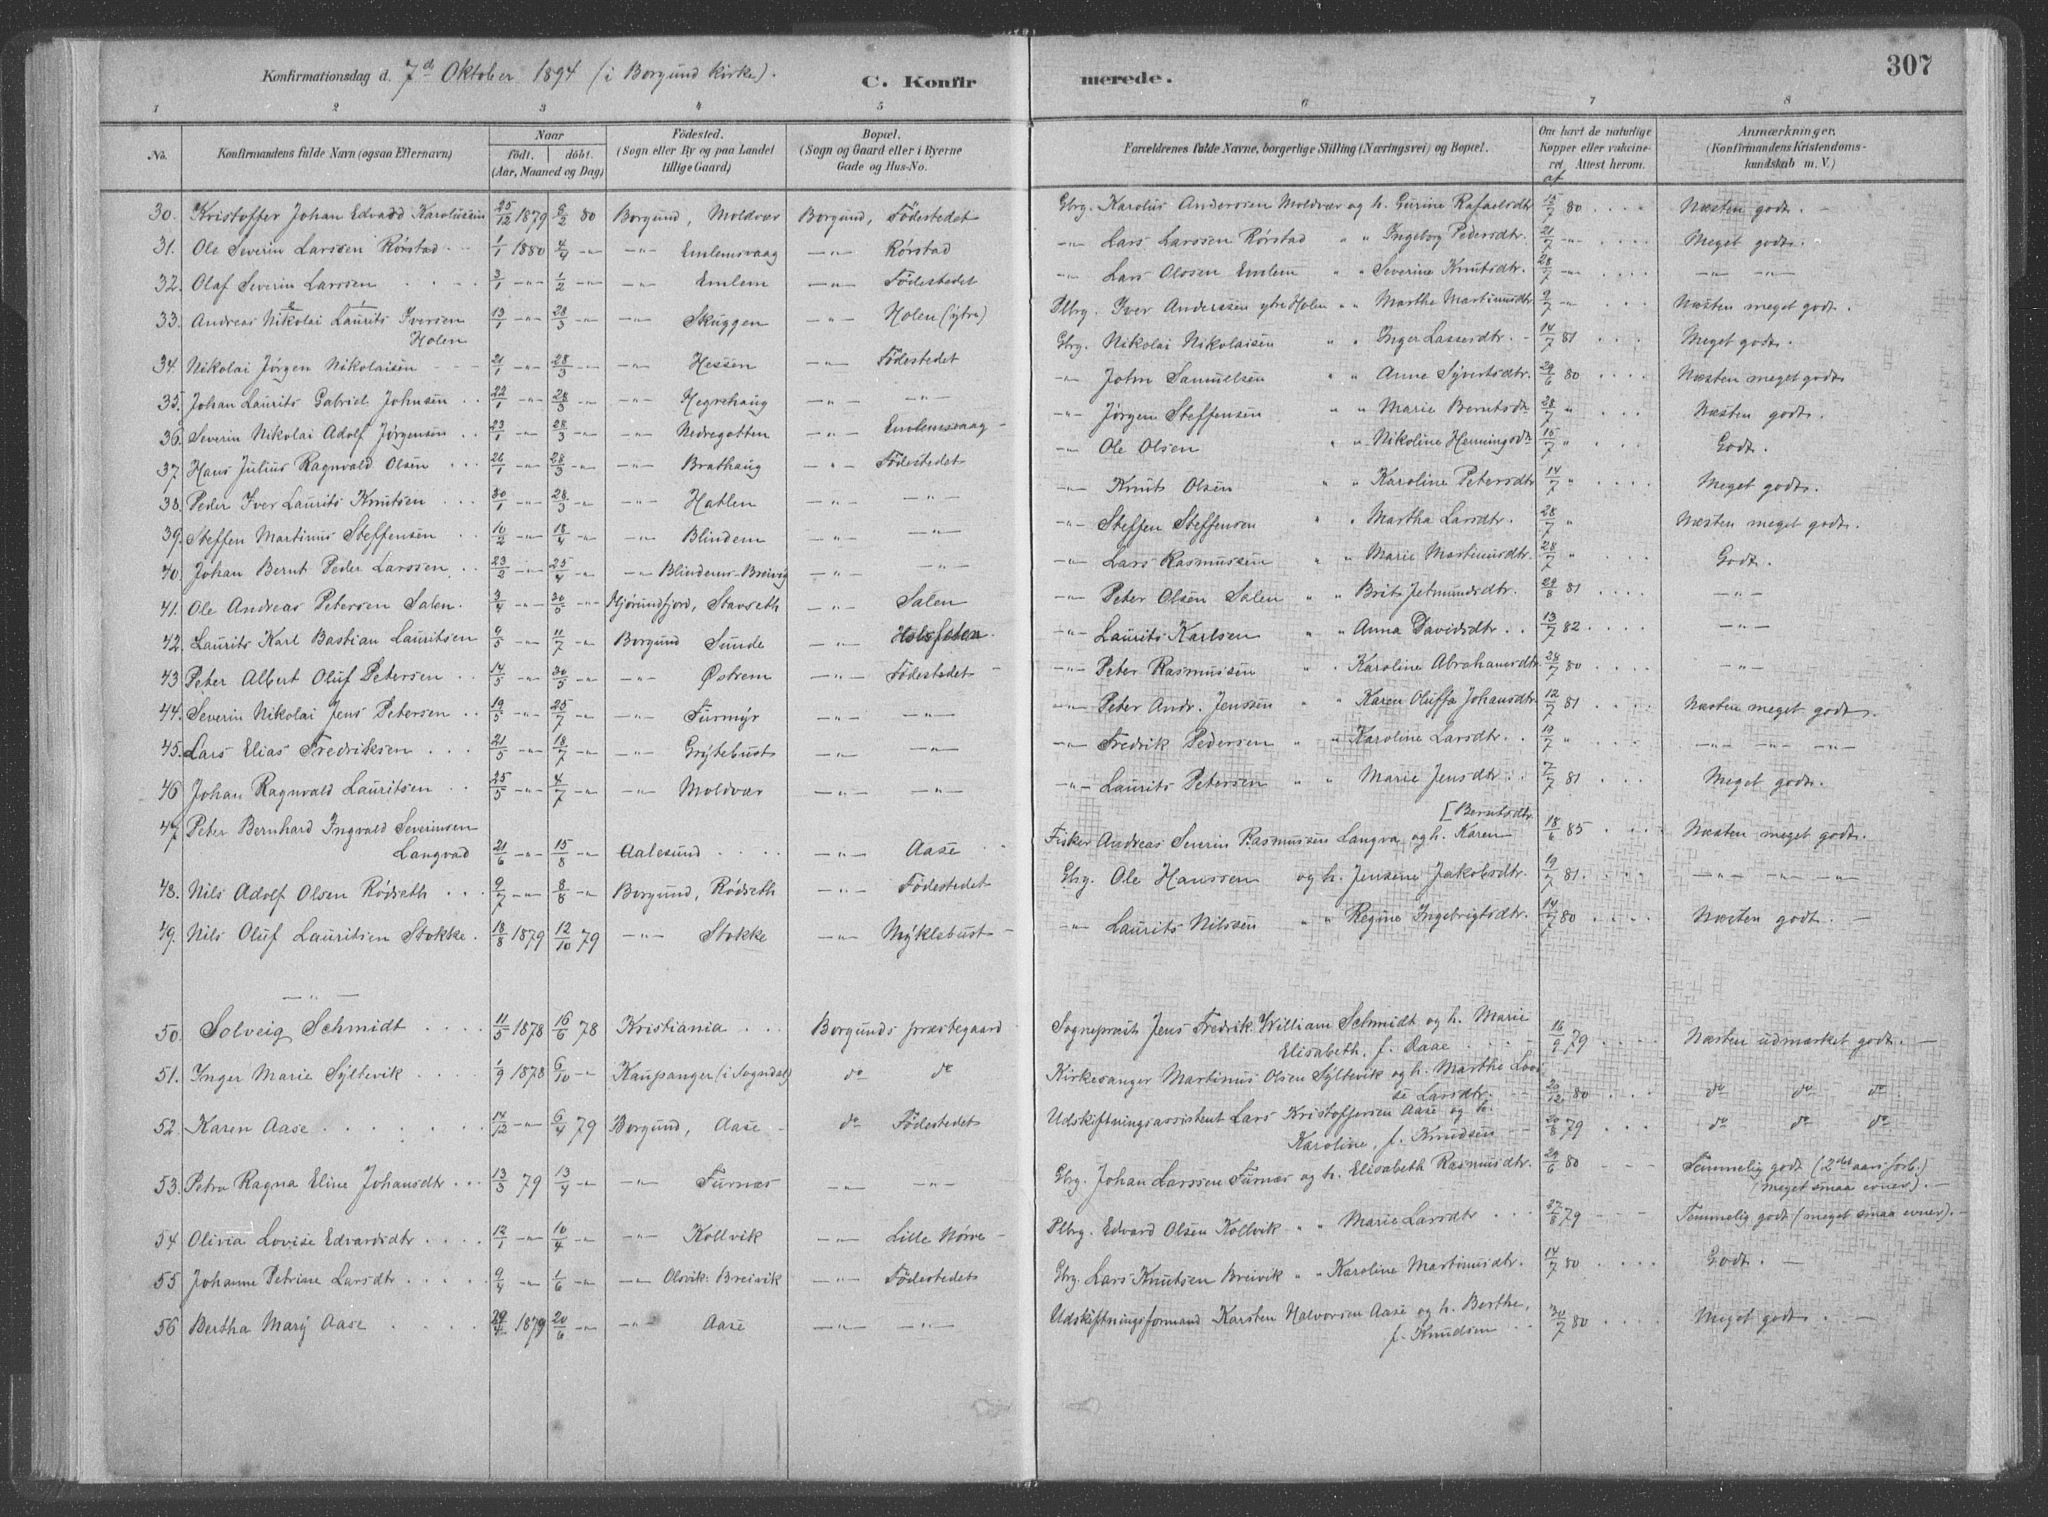 Konfirmationsdag d. 7de Oktober 1894 (i Borgund Kirke).
C. Konfirmerede.
307
1 2 3 4 5 6 7 8
No. | Konfirmandens fulde Navn (ogsaa Efternavn) | Naar födt. döbt. (Aar, Maaned og Dag) | Födested. (Sogn eller By og paa Landet tillige Gaard) | Bopæl. (Sogn og Gaard eller i Byerne Gade og Hus-No. | Forældrenes fulde Navne, borgerlige Stilling (Næringsvei) og Bopæl. | Om havt de naturlige Kopper eller vakcineret. Attest herom. | Anmærkninger. (Konfirmandens Kristendomskundskab m. V.)
30. Kristoffer Johan Edvadd Karolusen 25/12 1879 8/2 80 Borgund, Moldvær Borgund, Födestedet Gbrg. Karolus Anderssen Moldvær og h. Gurine Rafaelsdtr 15/7 80 Næsten godt. —
31. Ole Severin Larssen Rörstad 1/1 1880 4/4 -"- -"- Emlemsvaag -"- Rörstad -"- Lars Larssen Rörstad " " Ingeborg Pedersdtr. 21/7 -"- Meget godt.
32. Olaf Severin Larssen 3/1 -"- 1/2 -"- -"- Emlem -"- Födestedet -"- Lars Olosen Emlem " " Severine Knutsdtr. 28/7 -"- -"- -"-
33. Andreas Nikolai Laurits Iversen Holen 13/1 -"- 28/3 -"- -"- Skuggen -"- Holen (ytre) Plbrg. Iver Anderssen ytre Holen " " Marthe Martinusdtr 9/7 -"- Næsten meget godt.
34. Nikolai Jörgen Nikolaisen 21/1 -"- 28/3 -"- -"- Hessen -"- Födestedet Gbrg. Nikolai Nikolaisen " " Inger Lassesdtr. 14/7 81 Meget godt.
35. Johan Laurits Gabriel Johnsen 22/1 -"- 28/3 -"- -"- Hegrehaug -"- -"- -"- John Samuelsen " " Anne Syvertsdtr. 29/6 80 Næsten meget godt
36. Severin Nikolai Adolf Jörgensen 23/1 -"- 28/3 -"- -"- Nedregotten -"- Emlemsvaag -"- Jörgen Steffensen " " Marie Berntsdtr 28/7 " Næsten godt.
37. Hans Julius Ragnvald Olsen 26/1 -"- 28/3 -"- -"- Brathaug -"- Födestedet -"- Ole Olsen " " Nikoline Henningsdtr 15/7 " Godt.
38. Peder Iver Laurits Knutsen 30/1 -"- 28/3 -"- -"- Hatlen -"- -"- -"- Knut Olsen " " Karoline Petersdtr 14/7 " Meget godt.
39. Steffen Martinus Steffensen 10/2 -"- 18/4 -"- -"- Blindem -"- -"- -"- Steffen Steffensen " " Martha Larsdtr. 28/7 " Næsten meget godt.
40. Johan Bernt Peder Larssen 23/2 -"- 25/4 -"- -"- Blindems-Breivig -"- -"- -"- Lars Rasmussen " " Marie Martinusdtr. 28/7 " Godt.
41. Ole Andreas Petersen Salen. 3/4 -"- 30/5 -"- Hjörundfjord, Stavseth -"- Salen -"- Peter Olsen Salen " " Brit Jetmundsdtr. 29/8 81 -"-
42. Laurits Karl Bastian Lauritsen 9/5 -"- 11/7 -"- Borgund Sunde -"- Holsfeten -"- Laurits Karlsen " " Anna Davidsdtr. 13/7 82 -"-
43. Peter Albert Oluf Petersen 14/5 -"- 30/5 -"- -"- Østrem -"- Födestedet -"- Peter Rasmussen " " Karoline Abrahamsdtr. 28/7 80 -"-
44. Severin Nikolai Jens Petersen 19/5 -"- 25/7 -"- -"- Furmyr -"- -"- -"- Peter Andr. Jenssen " " Karen Oluffa Johansdtr 12/7 81 Næsten meget godt.
45. Lars Elias Fredriksen 21/5 -"- 18/7 -"- -"- Grytebust -"- -"- -"- Fredrik Pedersen " " Karoline Larsdtr. 19/7 " -"- -"- -"-
46. Johan Ragnvald Lauritsen 25/5 -"- 4/7 -"- -"- Moldvær -"- -"- -"- Laurits Petersen " " Marie Jensdtr. 7/7 81 Meget godt.
47. Peter Bernhard Ingvald Severinsen Langvad 21/6 -"- 15/8 -"- Aalesund -"- Aase Fisker Andreas Severin Rasmussen Langva og h. Karen [Berntsdtr. 18/6 85 Næsten meget godt.
48. Nils Adolf Olsen Rödseth 9/7 -"- 8/8 -"- Borgund, Rödseth -"- Födestedet Gbrg. Ole Hanssen og h. Jensine Jakobsdtr. 19/7 81. -"- -"- -"-
49. Nils Oluf Lauritsen Stokke. 18/8 1879 12/10 79 -"- Stokke -"- Myklebust -"- Laurits Nilssen " " Regine Ingebrigtsdtr. 14/7 80 Næsten godt. —
— " —
50. Solveig Schmidt 11/5 1878 16/6 78 Kristiania Borgunds præstegaard Sogneprest Jens Fredrik William Schmidt og h. Marie Elisabeth, f. Aase 16/9 79 Næsten udmærket godt. —
51. Inger Marie Syltevik 1/9 1878 6/10 -"- Kaupanger (i Sogndal) do do Kirkesanger Martinus Olsen Syltevik og h. Marthe Lovise Larsdtr. 20/12 80 do do do
52. Karen Aase 14/12 -"- 6/4 79 Borgund, Aase do Födestedet Udskiftningsassistent Lars Kristoffersen Aase og h. Karoline, f. Knudsen 20/8 79 do do do
53. Petra Ragna Eline Johansdtr 13/3 79 13/4 -"- -"- Furnæs -"- -"- Gbrg. Johan Larssen Furnæs og h. Elisabeth Rasmusdtr. 29/6 80 Temmelig godt (2det aars forb.) (meget smaa evner). —
54. Olivia Lovise Edvardsdtr 12/1 -"- 10/4 -"- -"- Kollvik -"- Lille Nörve Plbrg. Edvard Olsen Kollvik " " Marie Larsdtr 27/8 79 Temmelig godt (meget smaa evner). —
55. Johanne Petrine Larsdtr 9/4 -"- 1/6 -"- -"- Olsvik: Breivik -"- Födestedet Gbrg. Lars Knutsen Breivik " " Karoline Martinusdtr. 14/7 80 Godt. —
56. Bertha Mary Aase 29/4 1879 20/6 -"- -"- Aase -"- -"- Udskiftningsformand Karsten Halvorsen Aase og h. Berthe, f. Knudsen 30/7 80 Meget godt. —